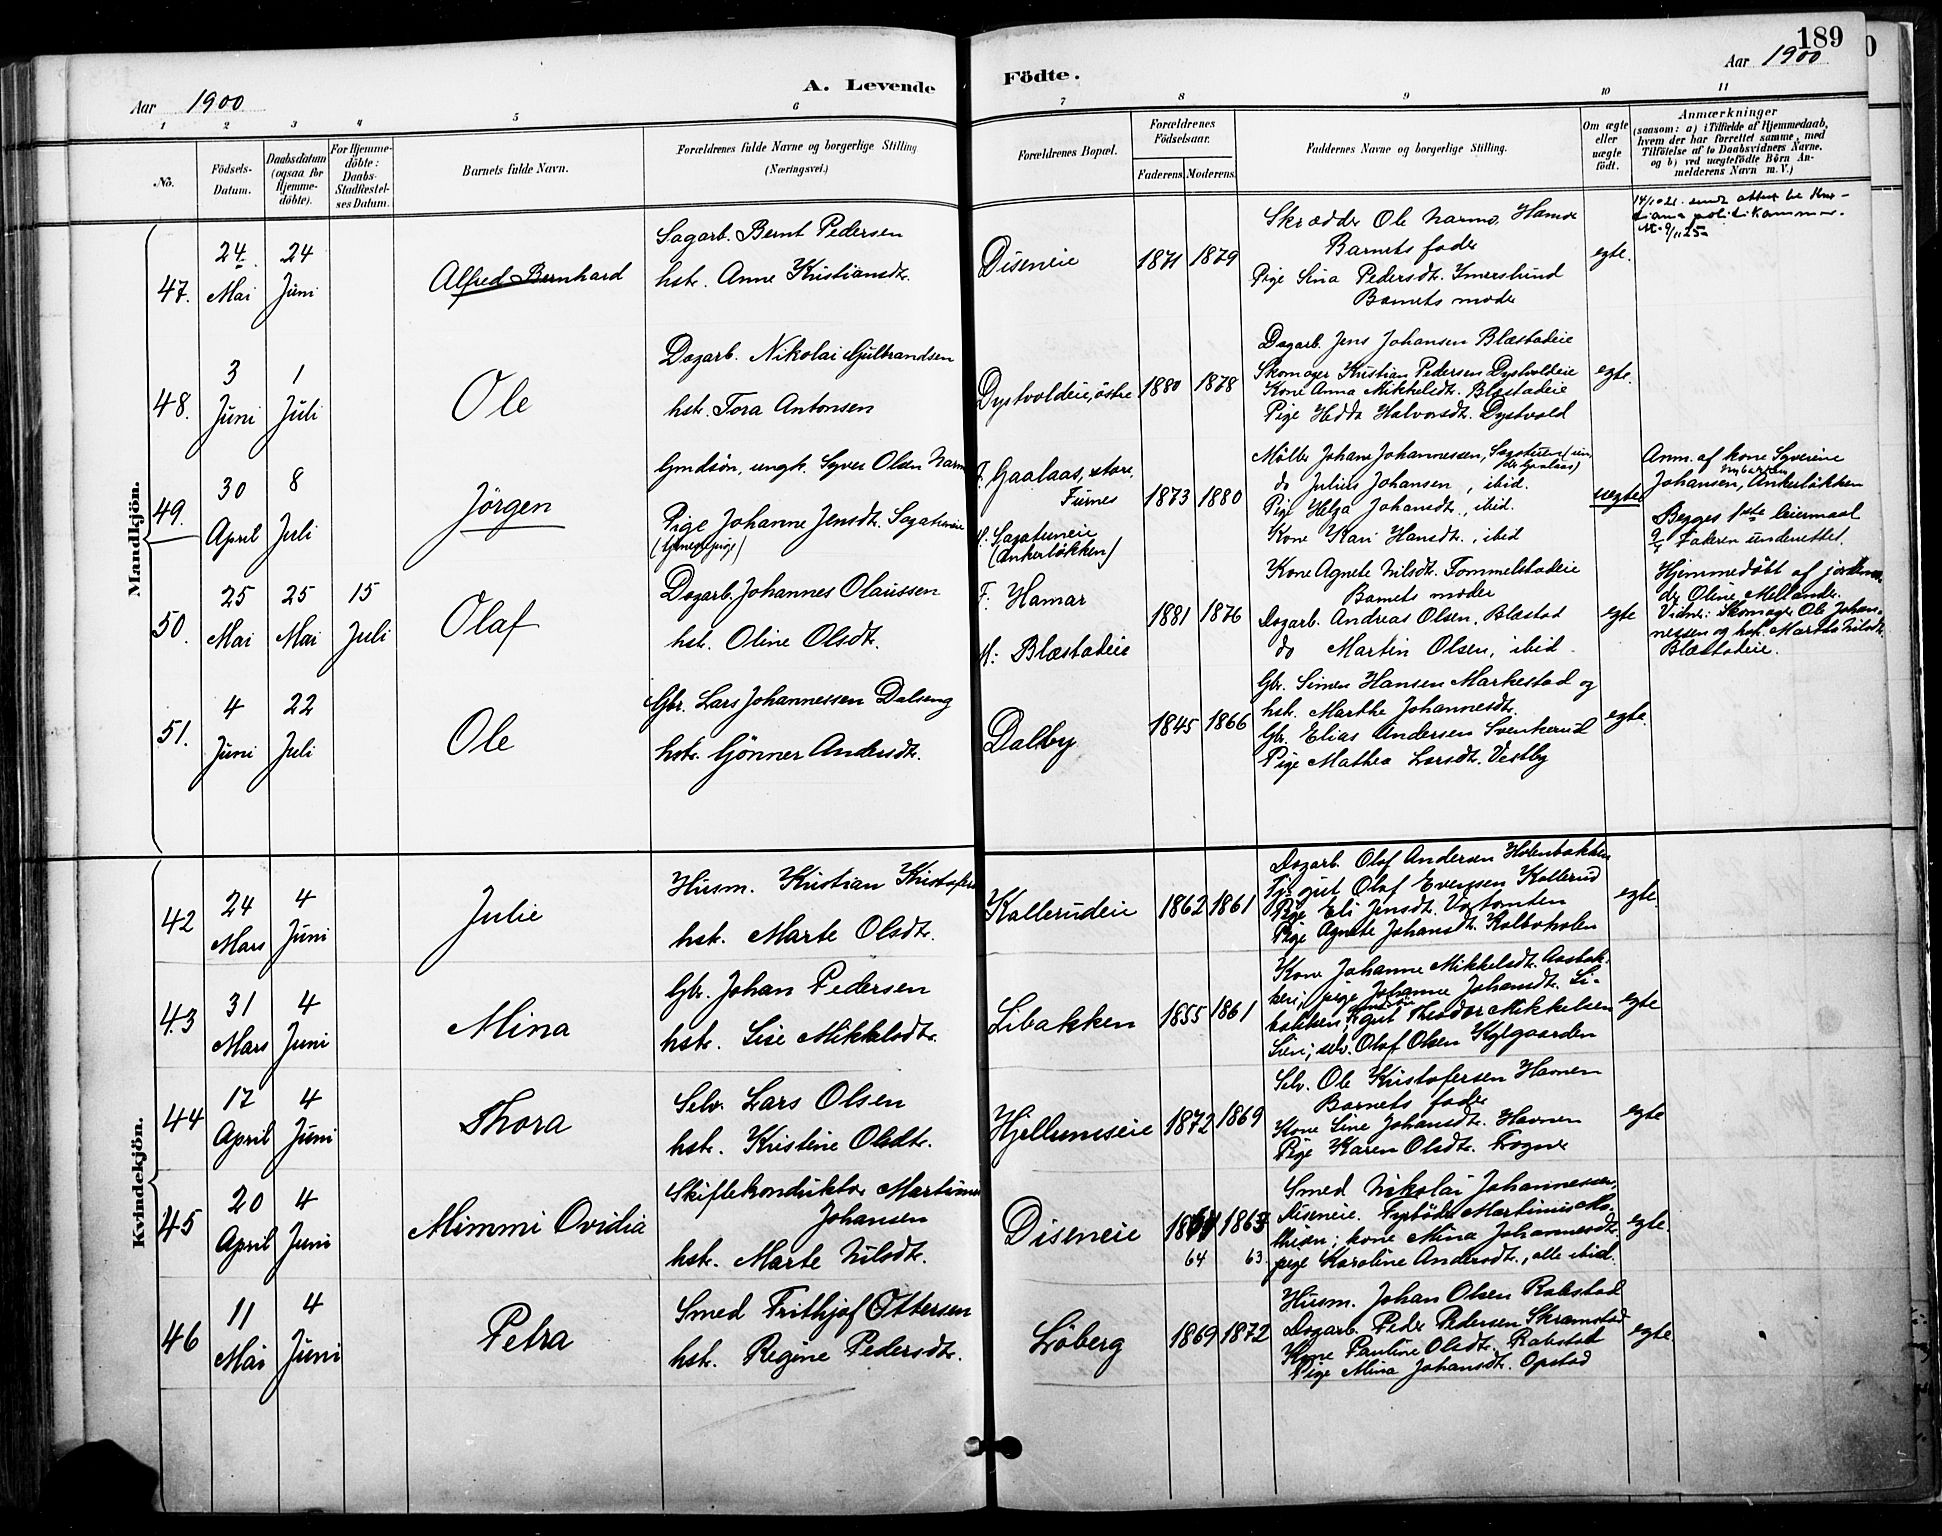 189
Aar 1900
A. Levende Födte.
Aar 1900
1 2 3 4 5 6 7 8 9 10 11
No.
Födsels-Datum.
Daabsdatum (ogsaa for Hjemme-döbte).
For Hjemme-döbte: Daabs-Stadfæstel-ses Datum.
Barnets fulde Navn.
Forældrenes fulde Navne og borgerlige Stilling (Næringsvei.)
Forældrenes Bopæl.
Forældrenes Födselsaar.
Faderens. Moderens.
Faddernes Navne og borgerlige Stilling.
Om ægte eller uægte født.
Anmærkninger
(saasom: a) i Tilfælde af Hjemmedaab, hvem der har forrettet samme, med Tilföielse af to Daabsvidners Navne, og b) ved uægtefödte Börn Anmelderens Navn m. V.)
Mandkjön.
47. 24. Mai
24 Juni
Alfred Bernhard
Sagarb. Bernt Pedersen
hst. Anne Kristiansdt.
Diseneie
1871 1879
Skrædder Ole Narmo, Hamar
Barnets fader
Pige Sina Pedersdt. Imerslund
Barnets moder
egte.
48. 3 Juni
1 Juli
Ole
Dagarb. Nikolai Gulbrandsen
hst. Tora Antonsen
Dystvoldeie, östre
1880 1878
Dagarb. Jens Johansen Blæstadeie
Skomager Kristian Pedersen Dystvoldeie
Kone Anna Mikkelsdt. Blæstadeie
Pige Hedda Halvorsdt. Dystvold
egte.
49. 30 April
8 Juli
Jörgen
Gmdsön, ungk. Syver Olsen
Pige Johanne Jensdt. Sagatuneie
(tjenestepige)
F. Gaalaas, store, Furnes
M. Sagatuneie
(Ankerløkken)
1873 1880
Møller Johan Johannessen, Sagatuneie
do Julius Johansen, ibid.
Pige Helga Johansdt., ibid.
Kone Kari Hansdt., ibid
uegte
Anm. af kone Syverine
Johansen, Ankerløkken
Begges 1ste leiermaal
Faderen underrettet.
50. 25 Mai
25 Mai
15 Juli
Olaf
Dagarb. Johannes Olaussen
hst. Oline Olsdt.
F: Hamar
M: Blæstadeie
1881 1876
Kone Agnete Nilsdt. Tommelstadeie
Barnets moder
Dagarb. Andreas Olsen, Blæstad
do Martin Olsen, ibid.
egte
Hjemmedöbt af jordemo-
der Oline Mellander.
Vidne: Skomager Ole Johan-
nessen og hst. Marthe Nilsdt.
Blæstadeie.
51. 4 Juni
22 Juli
Ole
Gbr. Lars Johannessen Dalseng
hst. Gönner Andersdt.
Dalby
1845 1866
Gbr. Simen Hansen Markestad og
hst. Marthe Johannesdt.
Gbr. Elias Andersen Svenkerud
Pige Mathea Larsdt. Vestby
egte.
Kvindekjön.
42 24 Mars
4 Juni
Julie
Husm. Kristian Kristofers
hst. Marte Olsdt.
Kallerudeie
1862 1861
Dagarb. Olaf Andersen Holenbakken
Tj. gut Olaf Evensen Kallerud
Pige Eli Jensdt.
Pige Agnete Johansdt.
egte.
43 31 Mars
4 Juni
Mina
Gbr. Johan Pedersen
hst. Lise Mikkelsdt.
Libakken
1855 1861
Kone Johanne Mikkelsdt. Aasbak-
ken; pige Johanne Johansdt. Li-
bakken; gut Theodor Mikkelsen
Lien; selv. Olaf Olsen Kylgaarden
egte
44 17 April
4 Juni
Thora
Selv. Lars Olsen
hst. Kristine Olsdt.
Hjellumseie
1872 1869
Selv. Ole Kristofersen Hamen
Barnets fader
Kone Sine Johansdt. Havnen
Pige Karen Olsdt. Frogner
egte
45 20 April
4 Juni
Mimmi Ovidia
Skiftekonduktør Martinius
Johansen
hst. Marte Nilsdt.
Diseneie
64 63.
Smed Nikolai Johannessen,
Diseneie. Fyrbøder Martinius Ma-
thisen; kone Mina Johannesdt.
pige Karoline Andersdt., alle ibid.
egte.
46 11 Mai
4 Juni
Petra
Smed Frithjof Ottersen
hst. Regine Pedersdt.
Löberg
1869 1872
Husm. Johan Olsen Rabstad
Dagarb. Peder Pedersen Skramstad
Kone Pauline Olsdt. Rabstad
Pige Mina Johansdt. Opstad
egte.